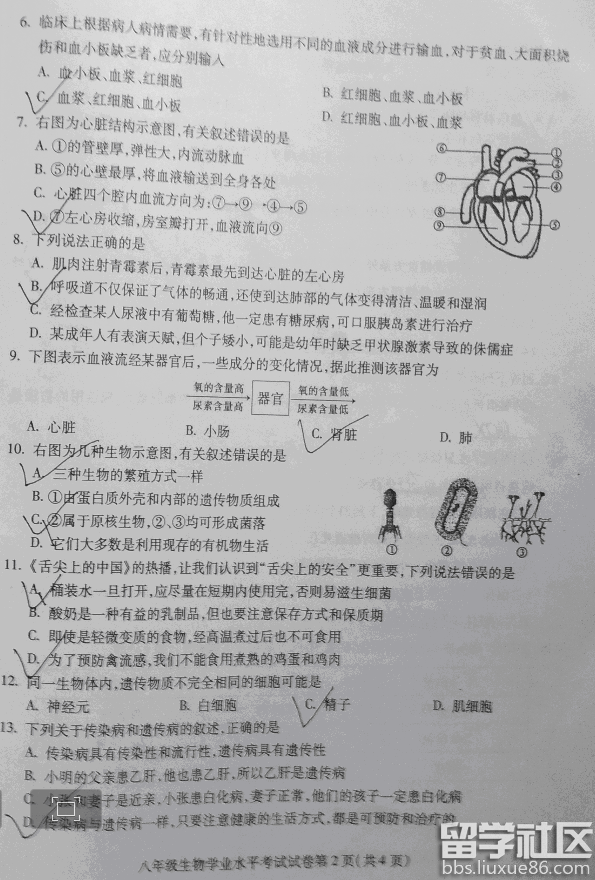 6. 临床上根据病人病情需要,有针对性地选用不同的血液成分进行输血,对于贫血、大面积烧
伤和血小板缺乏者,应分别输入
A. 血小板、血浆、红细胞 B. 红细胞、血浆、血小板
C. 血浆、红细胞、血小板 D. 红细胞、血小板、血浆
7. 右图为心脏结构示意图,有关叙述错误的是
A. ①的管壁厚,弹性大,内流动脉血
B. ⑤的心壁最厚,将血液输送到全身各处
C. 心脏四个腔内血流方向为:⑦→⑨→④→⑤
D. ⑦左心房收缩,房室瓣打开,血液流向⑨
⑥ ① ② ③ ⑦ ④ ⑧ ⑨ ⑤
8. 下列说法正确的是
A. 肌肉注射青霉素后,青霉素最先到达心脏的左心房
B. 呼吸道不仅保证了气体的畅通,还使到达肺部的气体变得清洁、温暖和湿润
C. 经检查某人尿液中有葡萄糖,他一定患有糖尿病,可口服胰岛素进行治疗
D. 某成年人有表演天赋,但个子矮小,可能是幼年时缺乏甲状腺激素导致的侏儒症
9. 下图表示血液流经某器官后,一些成分的变化情况,据此推测该器官为
氧的含量高 器官 氧的含量低
尿素含量高 尿素含量低
A. 心脏 B. 小肠 C. 肾脏 D. 肺
10. 右图为几种生物示意图,有关叙述错误的是
A. 三种生物的繁殖方式一样
B. ①由蛋白质外壳和内部的遗传物质组成
C. ②属于原核生物,②、③均可形成菌落
D. 它们大多数是利用现存的有机物生活
① ② ③
11. 《舌尖上的中国》的热播,让我们认识到“舌尖上的安全”更重要,下列说法错误的是
A. 桶装水一旦打开,应尽量在短期内使用完,否则易滋生细菌
B. 酸奶是一种有益的乳制品,但也要注意保存方式和保质期
C. 即使是轻微变质的食物,经高温煮过后也不可食用
D. 为了预防禽流感,我们不能食用煮熟的鸡蛋和鸡肉
12. 同一生物体内,遗传物质不完全相同的细胞可能是
A. 神经元 B. 白细胞 C. 精子 D. 肌细胞
13. 下列关于传染病和遗传病的叙述,正确的是
A. 传染病具有传染性和流行性,遗传病具有遗传性
B. 小明的父亲患乙肝,他也患乙肝,所以乙肝是遗传病
C. 小张和妻子是近亲,小张患白化病,妻子正常,他们的孩子一定患白化病
D. 传染病与遗传病一样,只要注意健康的生活方式,都是可预防和治疗的
八年级生物学业水平考试试卷第 2 页(共 4 页)
留学社区
bbs.liuxue86.com